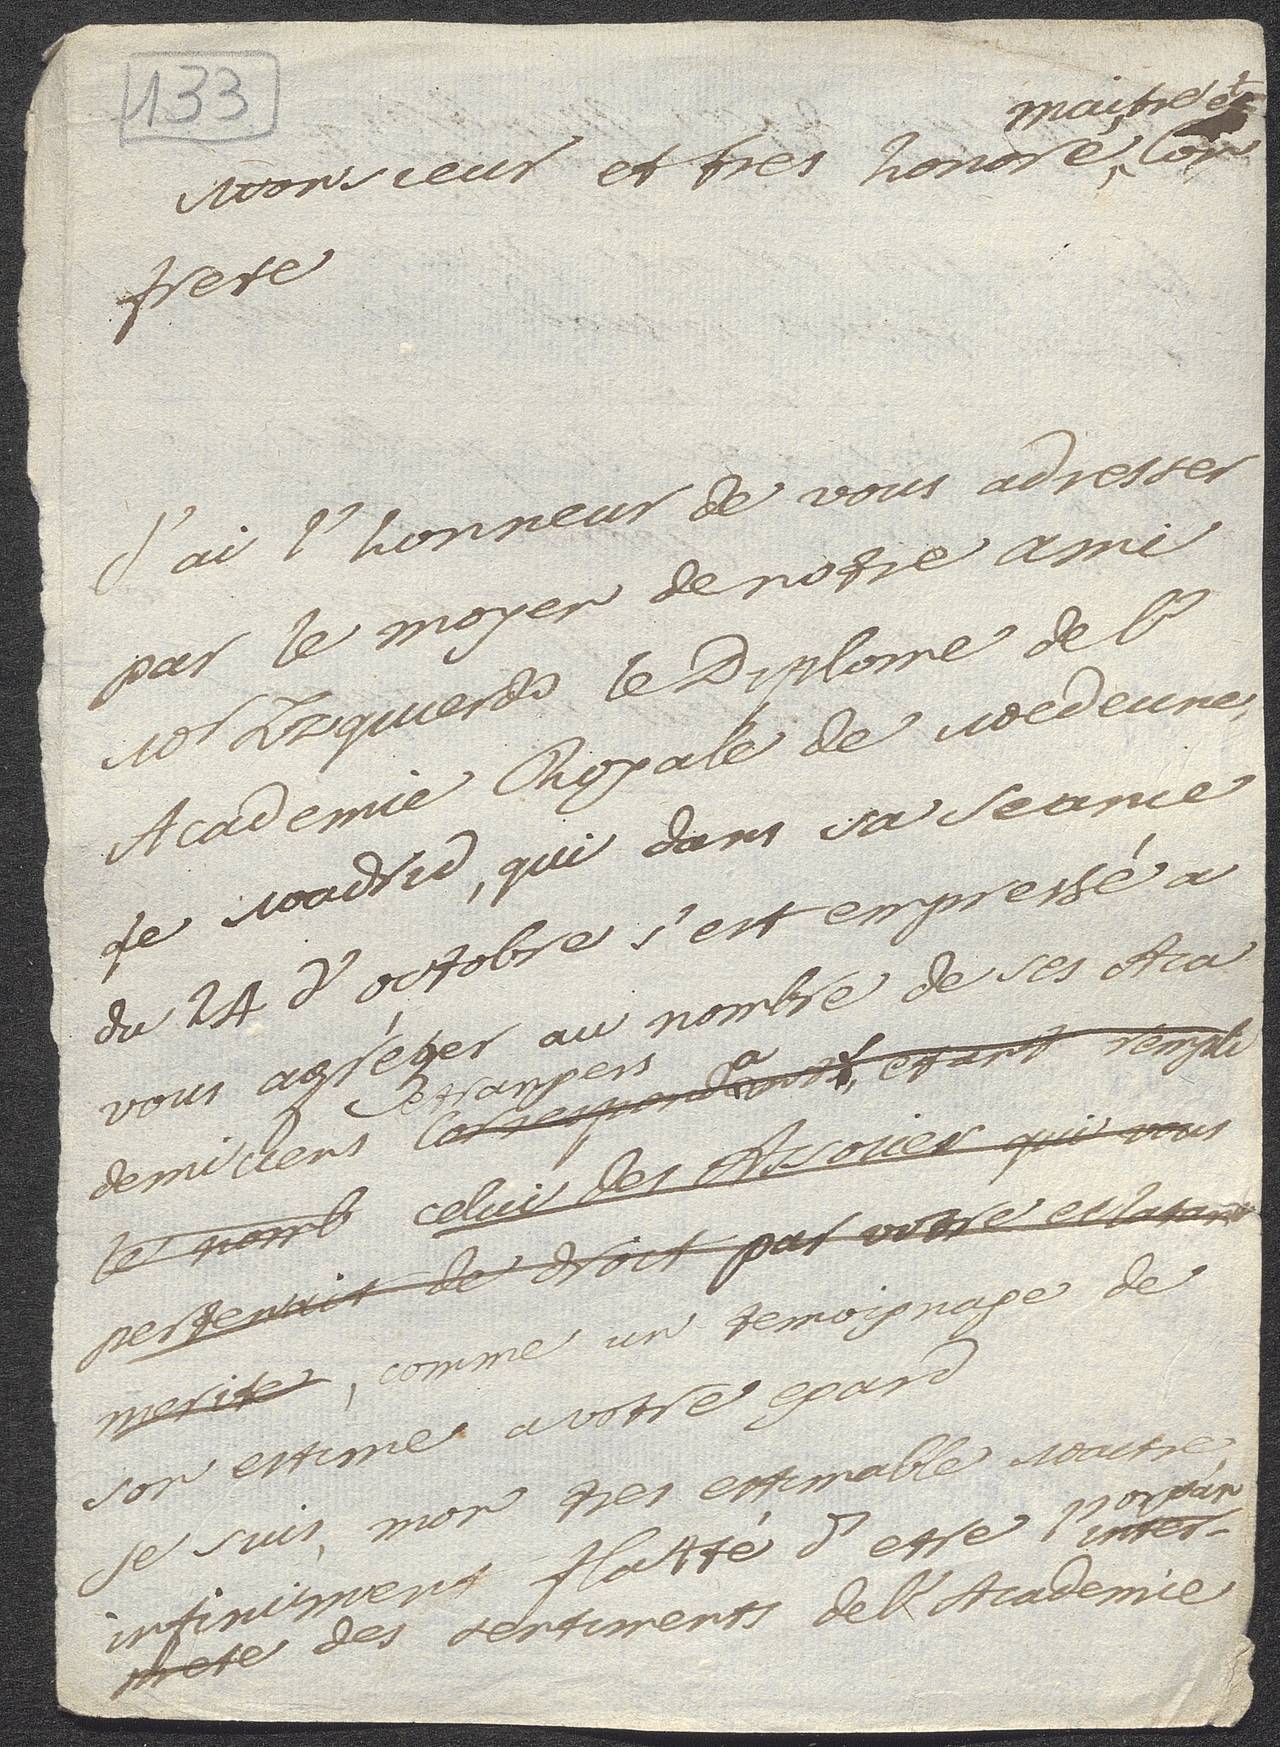 133
maitre et
Monsieur et tres honoré, Con
frere
J'ai l'honneur de vous adresser
par le moyen de notre ami
Mr Izquierdo le Diplome de l'
Academie Royale de Medecine,
de Madrid, qui dans sa seance
du 24 d'octobre s'est empressé a
vous agréger au nombre de ses Aca
etrangers
demiciens Correspondants, etant rempli
le nomb celui des Associés qui vous
pertenait de droit par votre eclatant
merite, comme un temoignage de
son estime a votre egard
Je suis, mon tres estimable Maitre
infiniment flatté d'etre l'organ
inter-
prete des sentiments de l'Academie